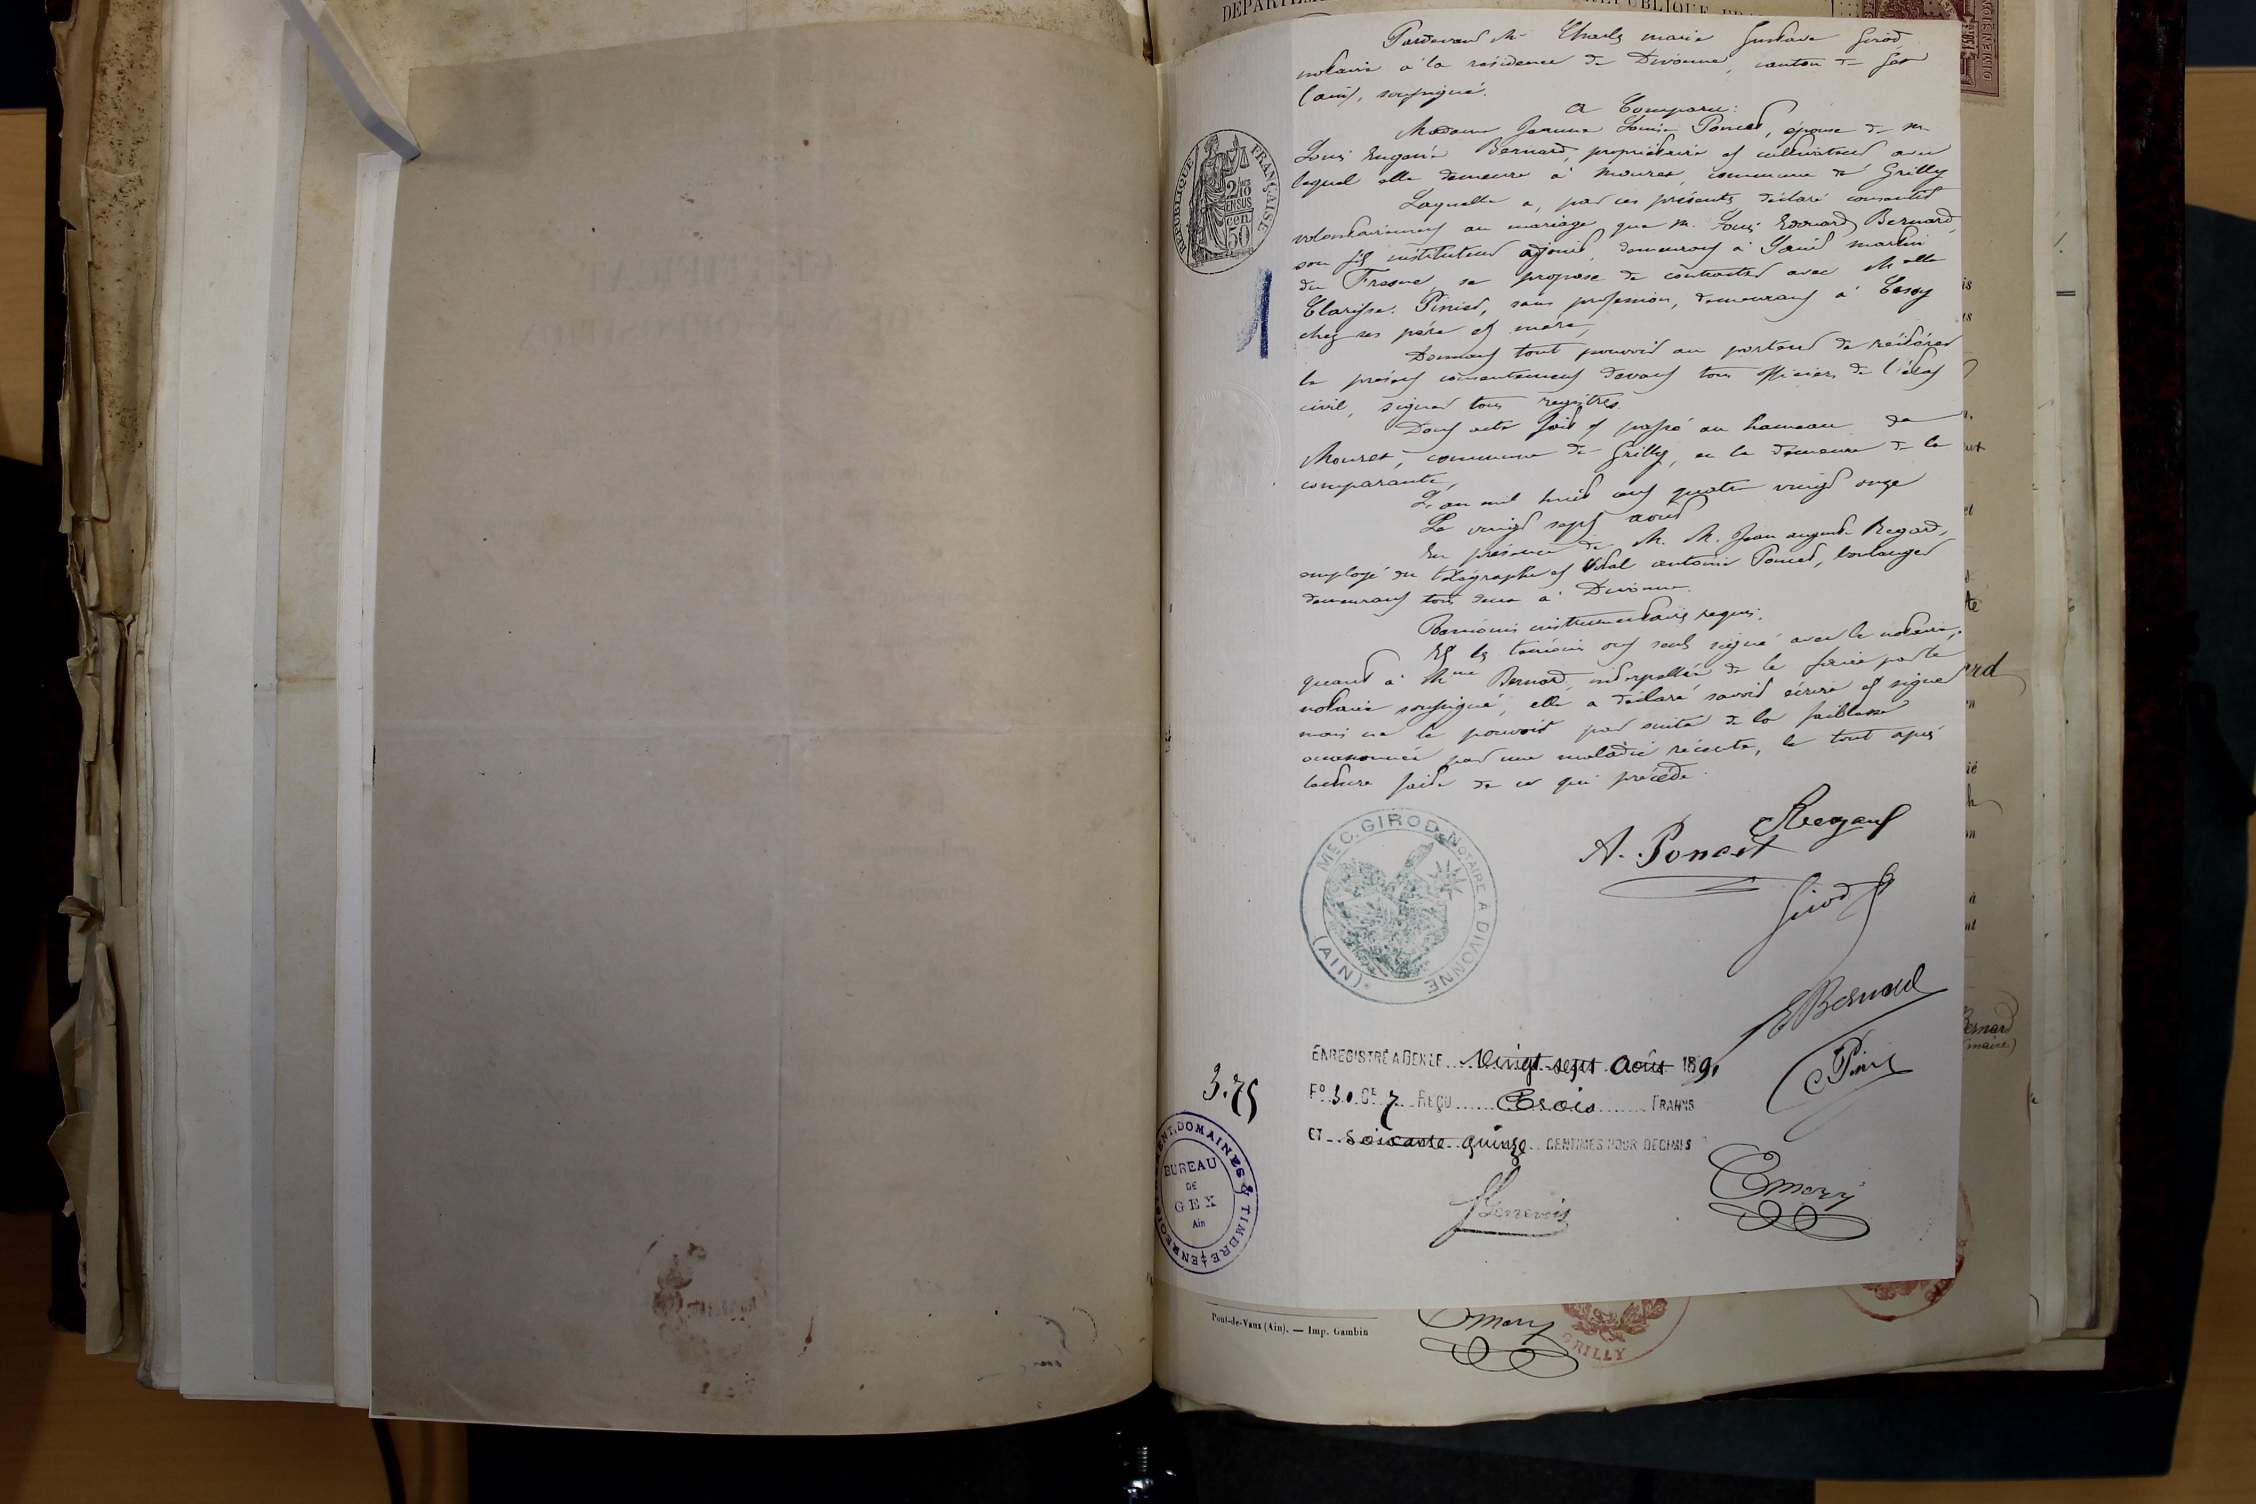 Pardevant Me Charles Marie Gustave Girod,
notaire à la résidence de Divonne, canton de Gex
(ain), soussigné.
A Comparu:
Madame Jeanne Louise Poncet, épouse de M.
Louis Eugène Bernard, propriétaire et cultivateur avec
lequel elle demeure à Mourex, commune de Grilly
Laquelle a, par ces présentes déclaré consentir
volontairement au mariage que M. Louis Edouard Bernard,
son fils instituteur adjoint, demeurant à Saint Martin
du Fresne, se propose de contracter avec Melle
Clarisse Pinier, sans profession, demeurant à Cessy
chez ses père et mère,
Donnant tout pouvoir au porteur de réitérer
le présent consentement devant tous officiers de l'état
civil, signer tous registres.
Dont acte fait et passé au hameau de
Mourex, commune de Grilly, en la demeure de la
comparante,
L'an mil huit cent quatre vingt onze
Le vingt sept août
En présence de M. M. Jean auguste Regard,
employé du télégraphe et Vidal antoine Poncet, boulanger
demeurant tous deux à Divonne.
Témoins instrumentaires requis.
Et les témoins ont seuls signé avec le notaire,
quant à Mme Bernard, interpellée de le faire par le
notaire soussigné, elle a déclaré savoir écrire et signer
mais ne le pouvoir par suite de la faiblesse
occasionnée par une maladie récente, le tout après
lecture faite de ce qui précède.
RÉPUBLIQUE FRANÇAISE
2 frs
EN SUS
cen
50
A. Poncet
Girod
E Bernard
Emery
ME C. GIROD NOTAIRE A DIVONNE
(AIN)
ENREGISTRÉ A GEX LE Vingt sept Août 1891
Fo 30 Ce 7 REÇU Trois FRANCS
ET soixante quinze CENTIMES POUR DÉCIMES
3.75
ENREGISTREMENT, DOMAINES & TIMBRE
BUREAU
DE
GEX
Ain
Pont-de-Vaux (Ain). — Imp. Gambin
Emery
GRILLY
Bernard
(maire)